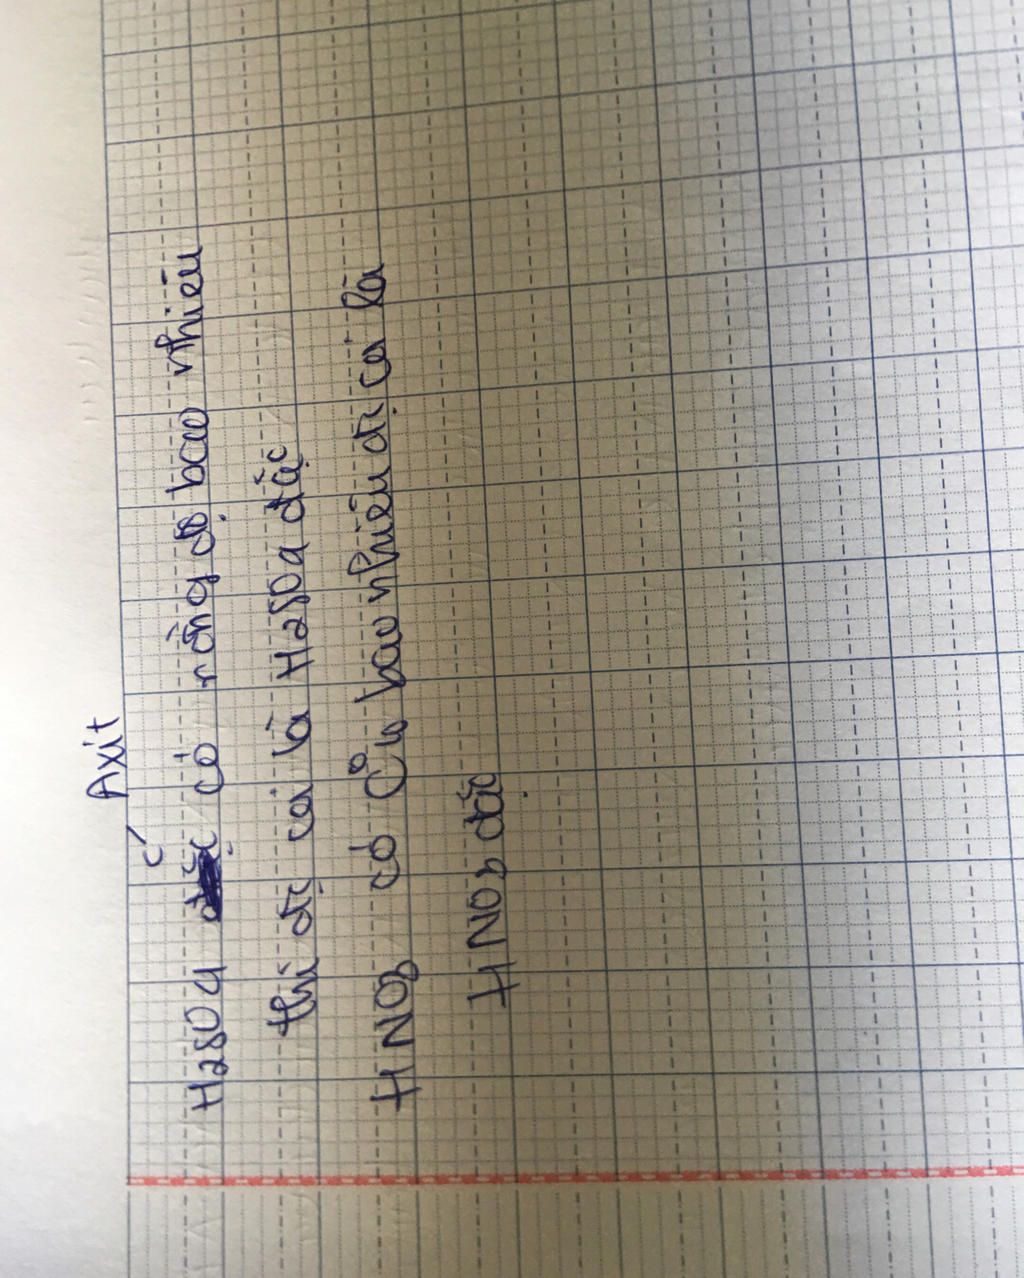 Axit
H2SO4 có nồng độ bao nhiêu
thì đc coi là H2SO4 đặc
HNO3 có C% bao nhiêu đc coi là
HNO3 đặc